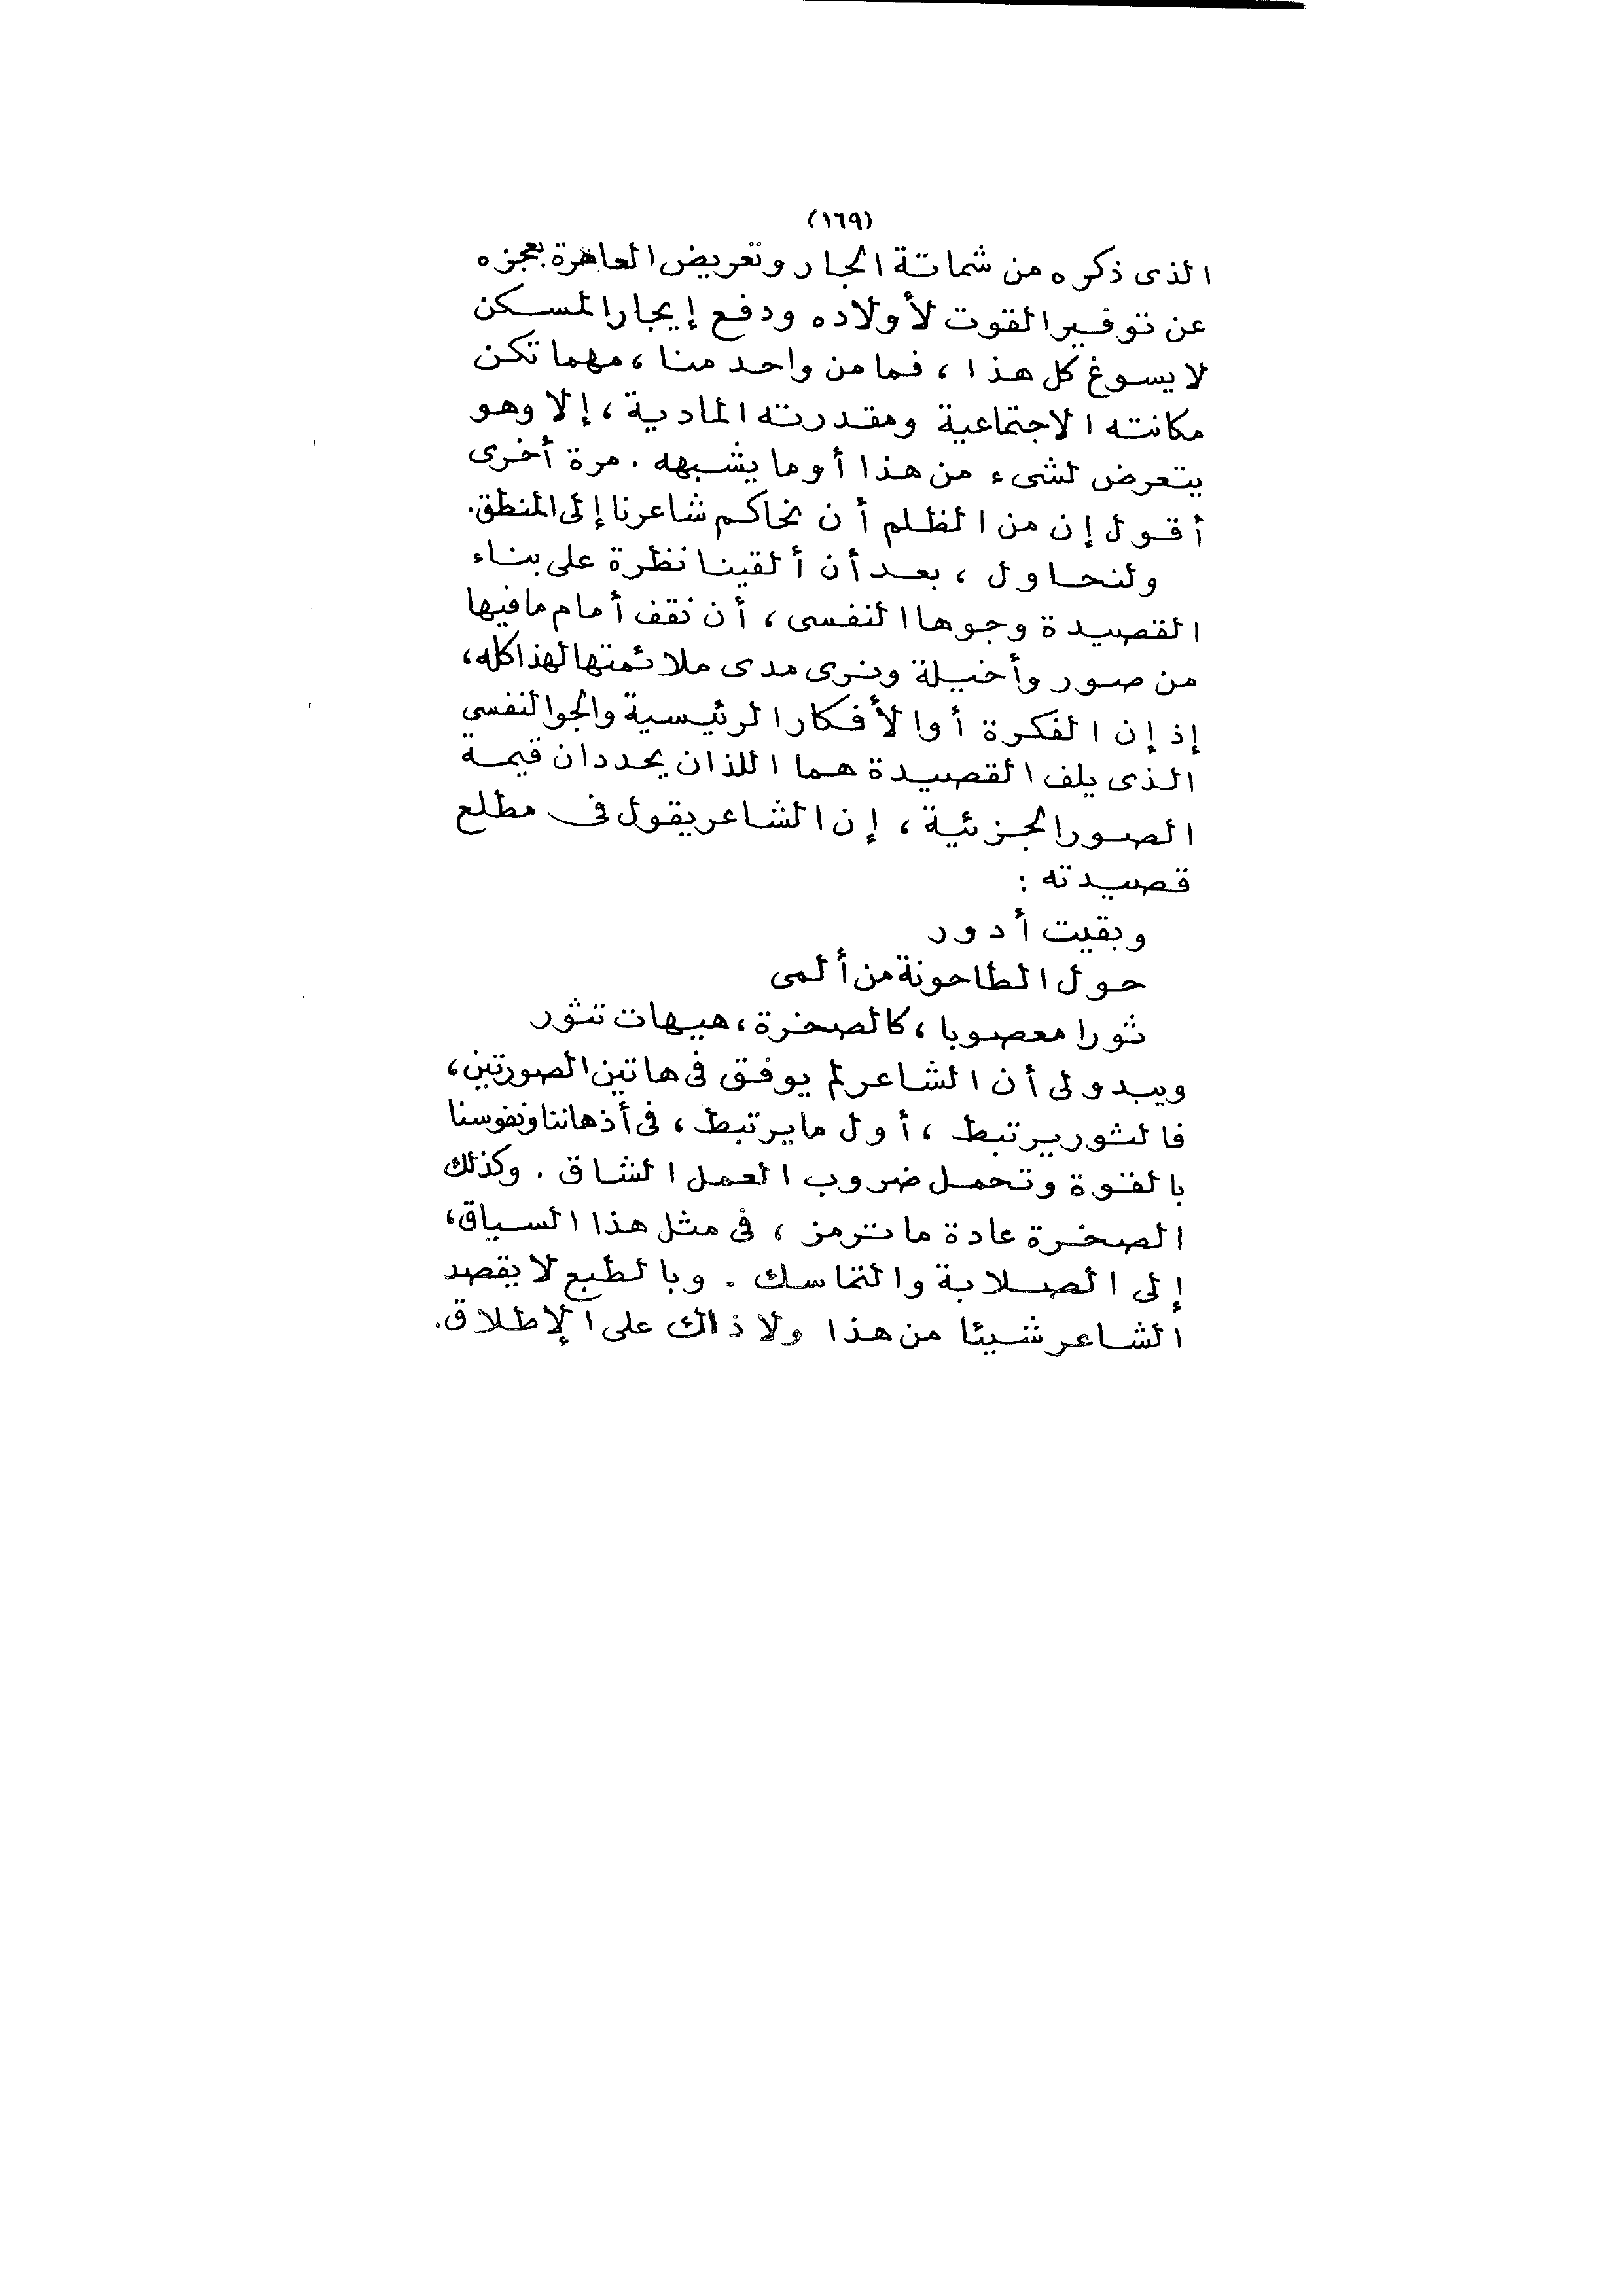 (١٦٩)
الذى ذكره من شماتة الجار وتعريض العاهرة بعجزه
عن توفير القوت لأولاده ودفع إيجار المسكن
لا يسوغ كل هذا ، فما من واحد منا ، مهما تكن
مكانته الاجتماعية ومقدرته المادية ، إلا وهو
يتعرض لشىء من هذا أو ما يشبهه . مرة أخرى
أقول إن من الظلم أن نحاكم شاعرنا إلى المنطق.
ولنحاول ، بعد أن ألقينا نظرة على بناء
القصيدة وجوها النفسى ، أن نقف أمام ما فيها
من صور وأخيلة ونرى مدى ملائمتها لهذا كله،
إذ إن الفكرة أو الأفكار الرئيسية والجو النفسى
الذى يلف القصيدة هما اللذان يحددان قيمة
الصور الجزئية ، إن الشاعر يقول فى مطلع
قصيدته :
وبقيت أدور
حول الطاحونة من ألمى
ثورا معصوبا ، كالصخرة ، هيهات تثور
ويبدو لى أن الشاعر لم يوفق فى هاتين الصورتين،
فالثور يرتبط ، أول ما يرتبط ، فى أذهاننا ونفوسنا
بالقوة وتحمل ضروب العمل الشاق . وكذلك
الصخرة عادة ما ترمز ، فى مثل هذا السياق،
إلى الصلابة والتماسك . وبالطبع لا يقصد
الشاعر شيئا من هذا ولا ذاك على الإطلاق.